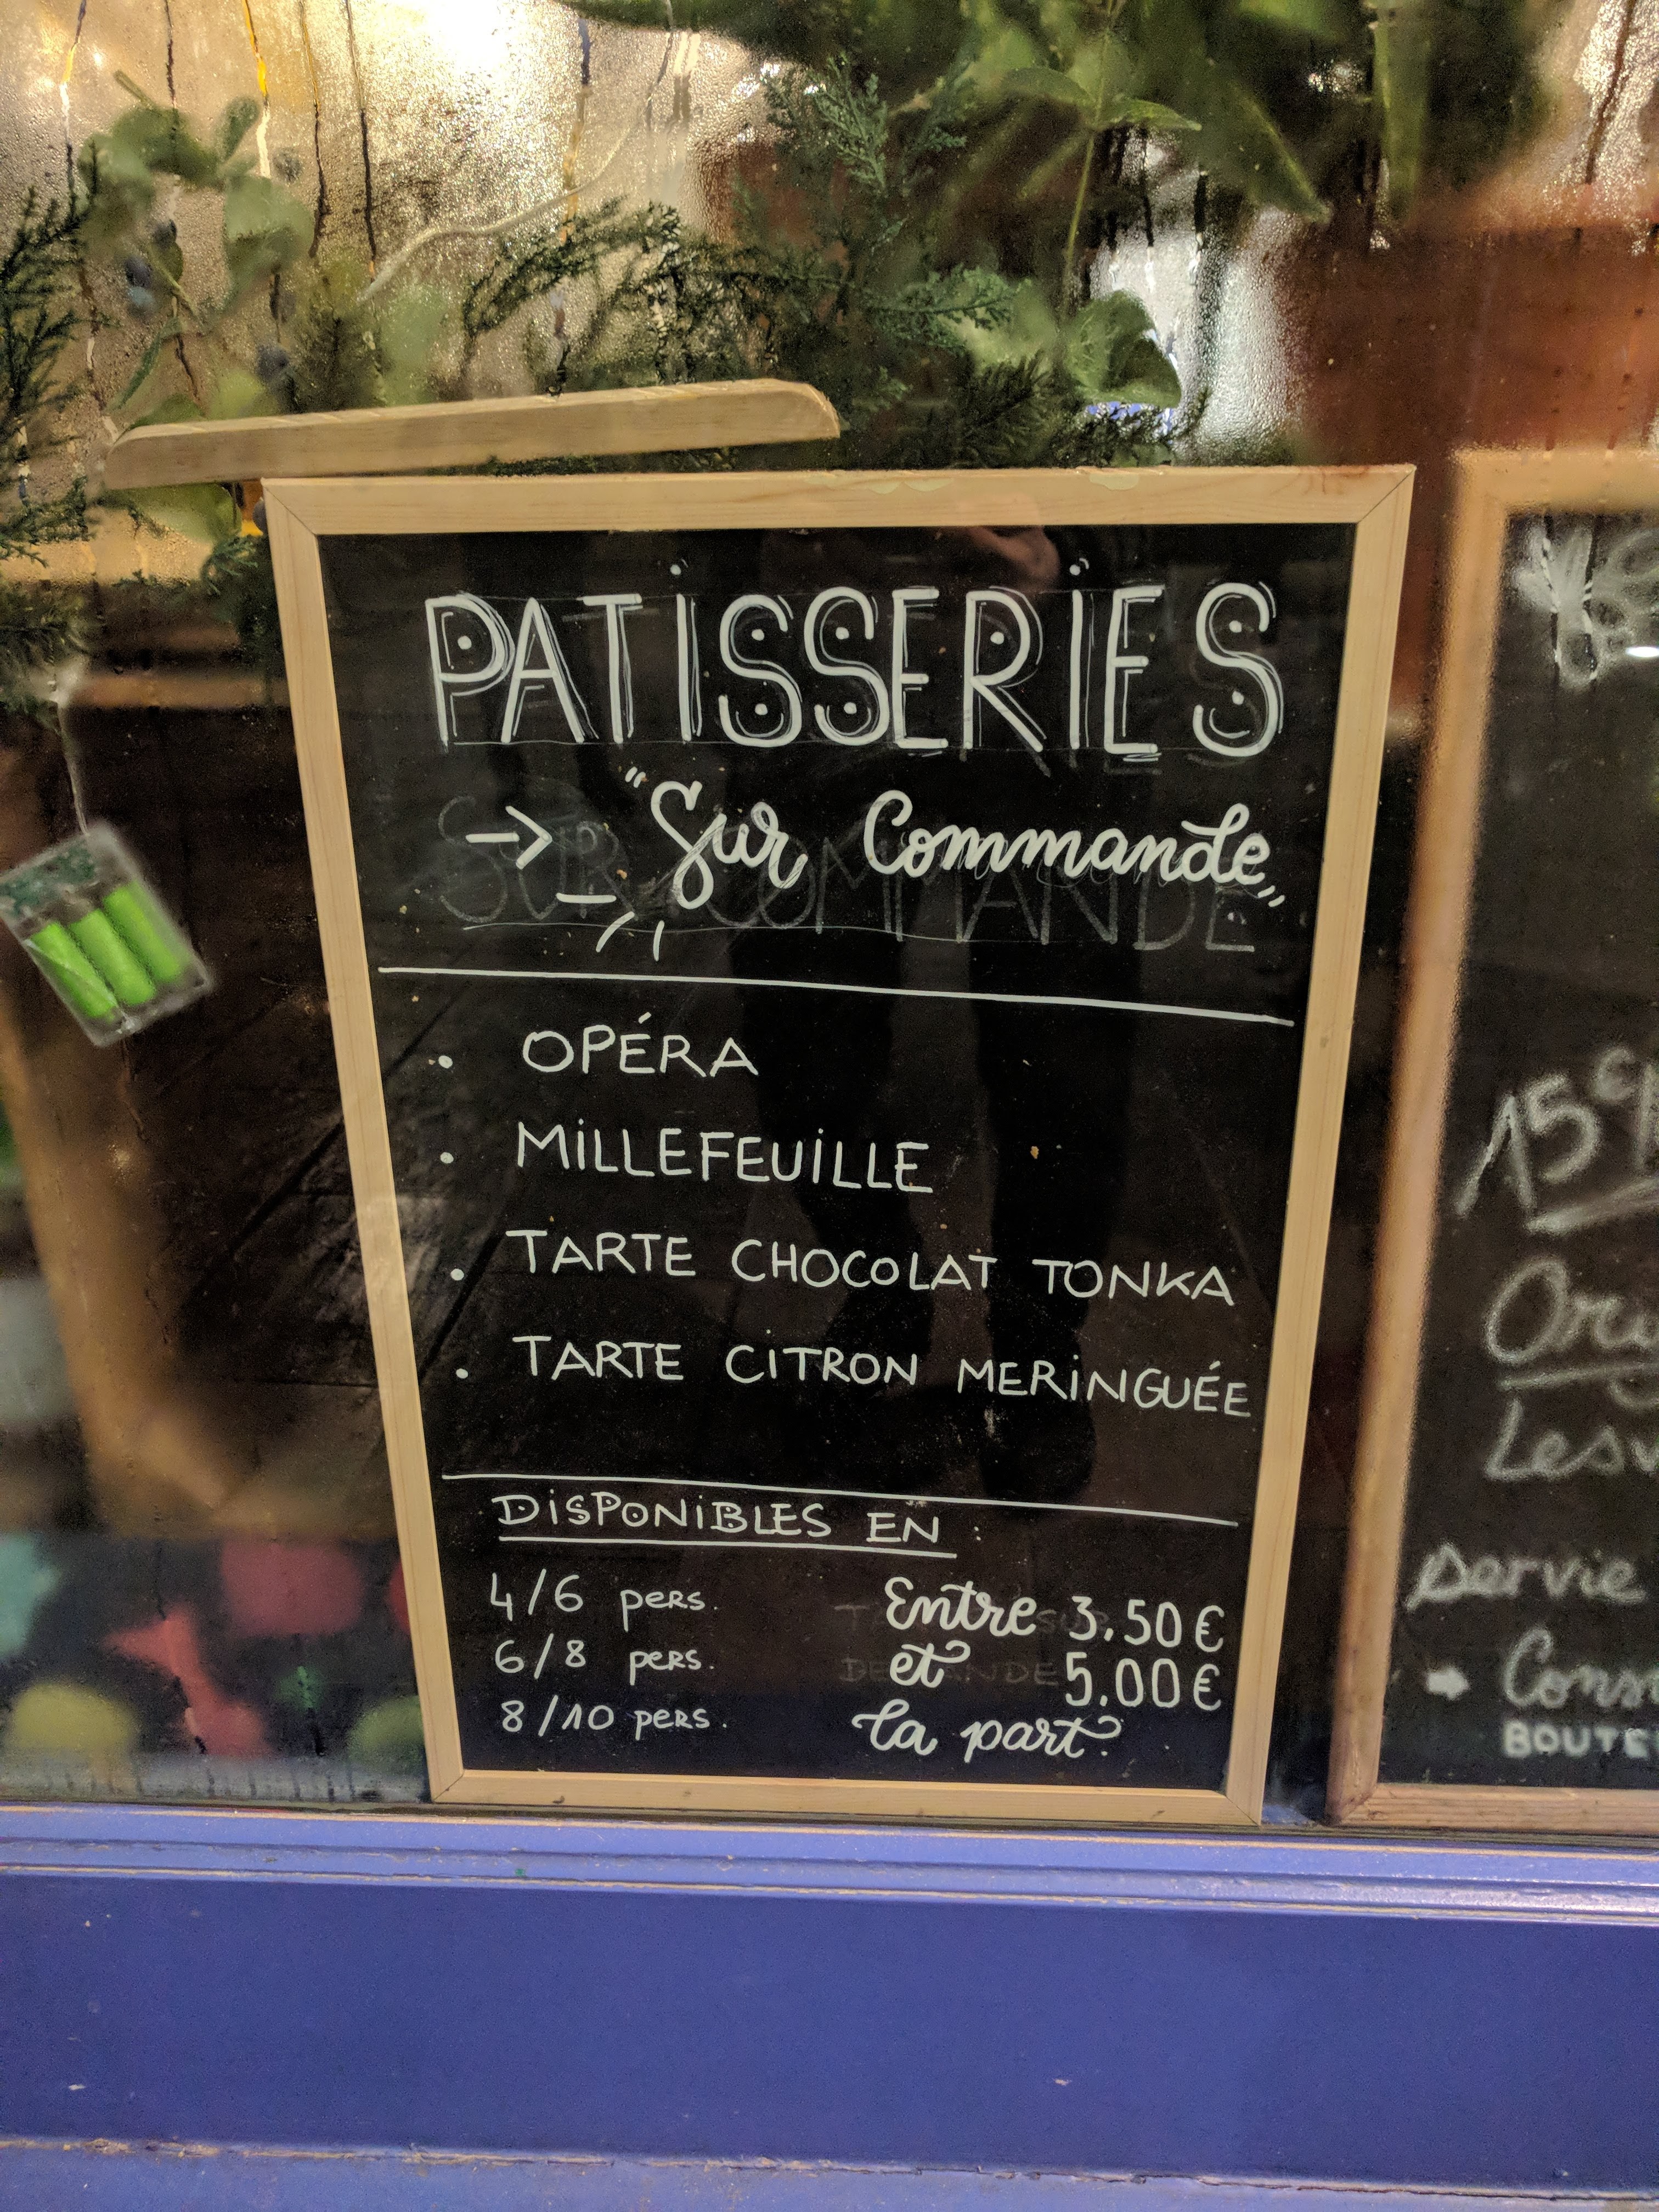 PATISSERIES
→ "Sur Commande"
SUR COMMANDE
. OPÉRA
. MILLEFEUILLE
. TARTE CHOCOLAT TONKA
. TARTE CITRON MERINGUÉE
DISPONIBLES EN :
4/6 pers.
6/8 pers.
8/10 pers.
Entre 3.50€
et 5.00€
la part.
15€
servie
BOUTE